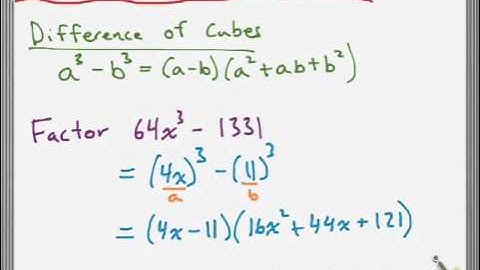 Difference of Cubes
a³ - b³ = (a-b)(a² + ab + b²)
Factor 64x³ - 1331
= (4x)³ - (11)³
a b
= (4x - 11)(16x² + 44x + 121)